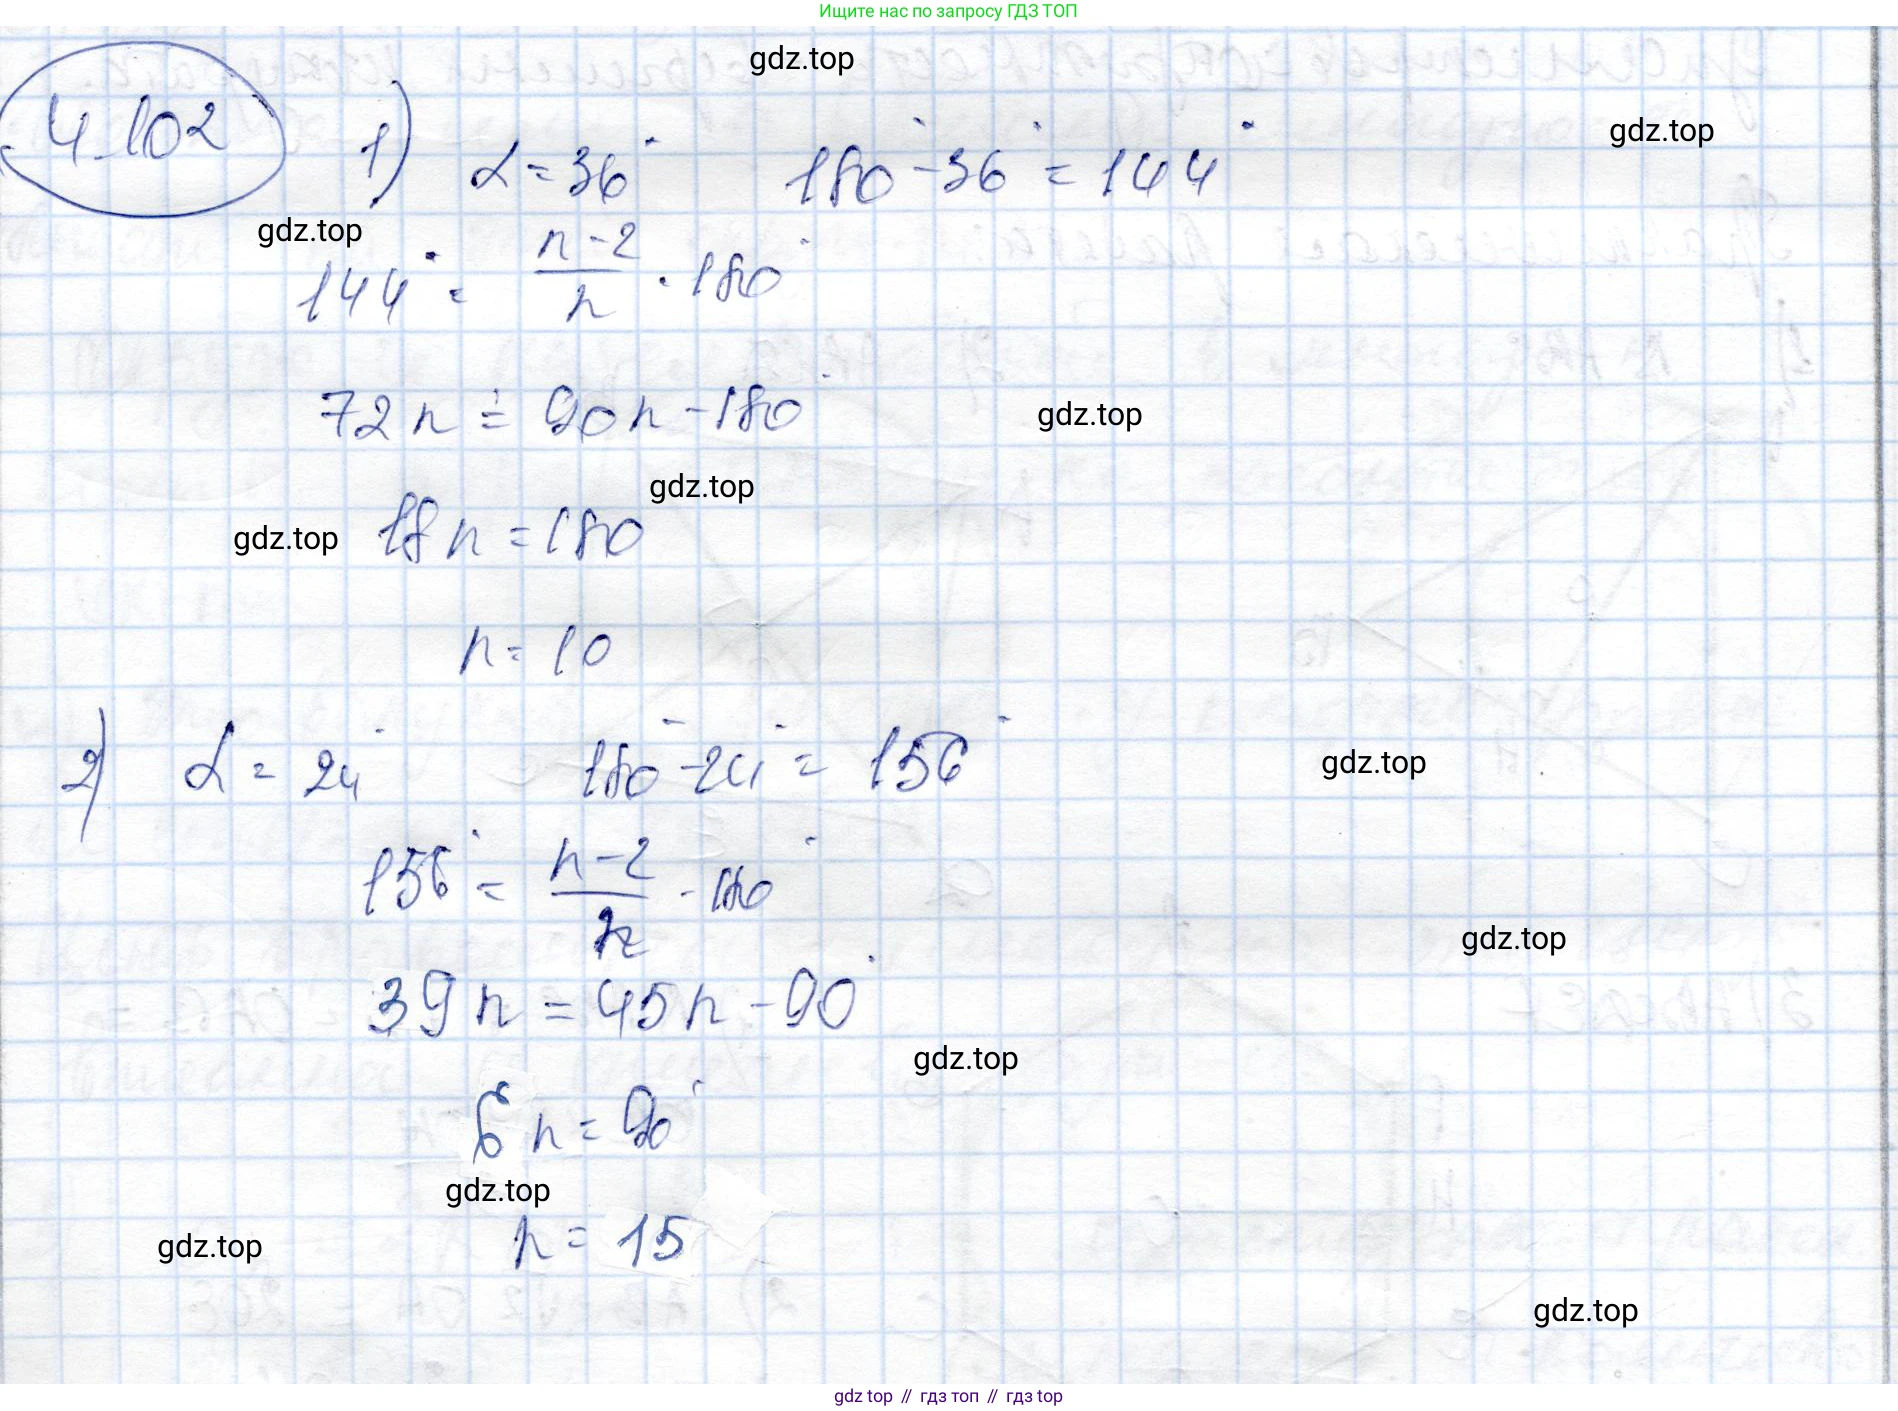 Ищите нас по запросу ГДЗ ТОП
gdz.top
4.102 1) α = 36° 180° - 36° = 144°
gdz.top
gdz.top
144° = (n - 2)/n · 180°
72n = 90n - 180°
gdz.top
gdz.top
18n = 180
gdz.top
n = 10
2) α = 24° 180° - 24° = 156°
gdz.top
156° = (n - 2)/n · 180°
gdz.top
39n = 45n - 90°
gdz.top
6n = 90°
gdz.top
n = 15
gdz.top
gdz.top
gdz top // гдз топ // гдз top